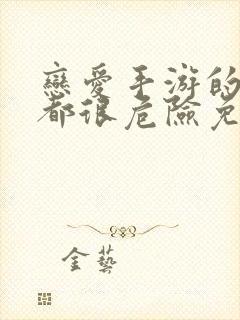 戀愛手游的
都很危險免
金藝